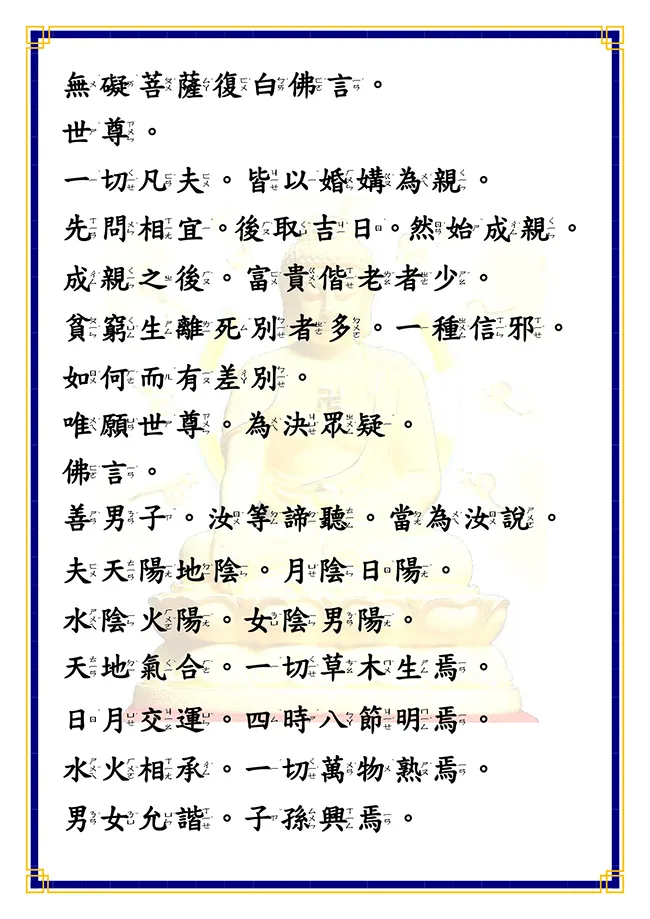 無礙菩薩復白佛言。
世尊。
一切凡夫。皆以婚媾為親。
先問相宜。後取吉日。然始成親。
成親之後。富貴偕老者少。
貧窮生離死別者多。一種信邪。
如何而有差別。
唯願世尊。為決眾疑。
佛言。
善男子。汝等諦聽。當為汝說。
夫天陽地陰。月陰日陽。
水陰火陽。女陰男陽。
天地氣合。一切草木生焉。
日月交運。四時八節明焉。
水火相承。一切萬物熟焉。
男女允諧。子孫興焉。